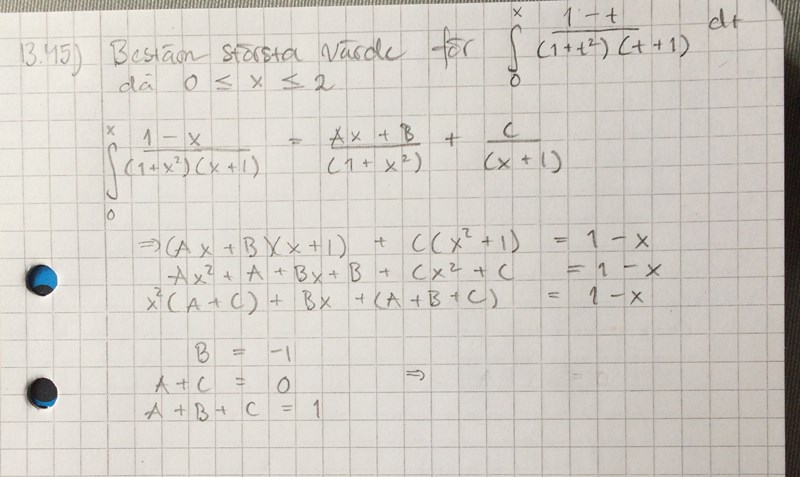 13.45) Bestäm största värde för ∫₀ˣ (1-t)/((1+t²)(t+1)) dt
då 0 ≤ x ≤ 2
∫₀ˣ (1-x)/((1+x²)(x+1)) = (Ax + B)/(1+x²) + C/(x+1)
⇒ (Ax + B)(x+1) + C(x²+1) = 1-x
Ax² + A + Bx + B + Cx² + C = 1-x
x²(A+C) + Bx + (A+B+C) = 1-x
B = -1
A+C = 0 ⇒
A+B+C = 1